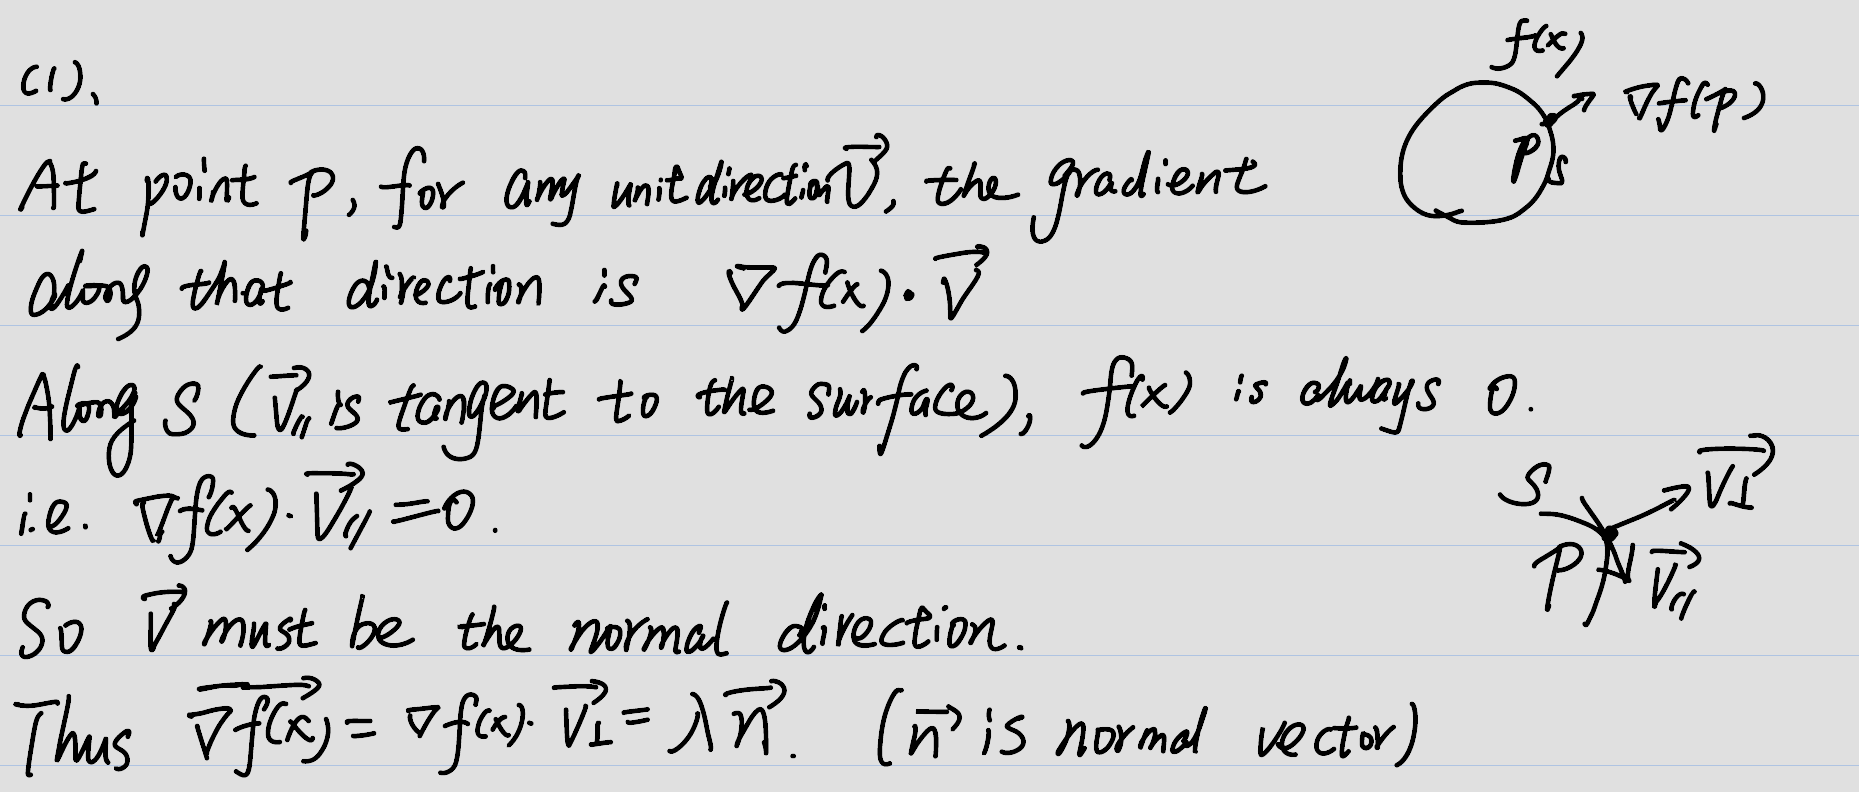 (1)、
f(x)
∇f(p)
P
S
At point P, for any unit direction V⃗, the gradient
along that direction is ∇f(x)·V⃗
Along S (V⃗∥ is tangent to the surface), f(x) is always 0.
i.e. ∇f(x)·V⃗∥ = 0.
S
V⃗⊥
P
V⃗∥
So V⃗ must be the normal direction.
Thus ∇f(x)⃗ = ∇f(x)·V⃗⊥ = λn⃗. (n⃗ is normal vector)